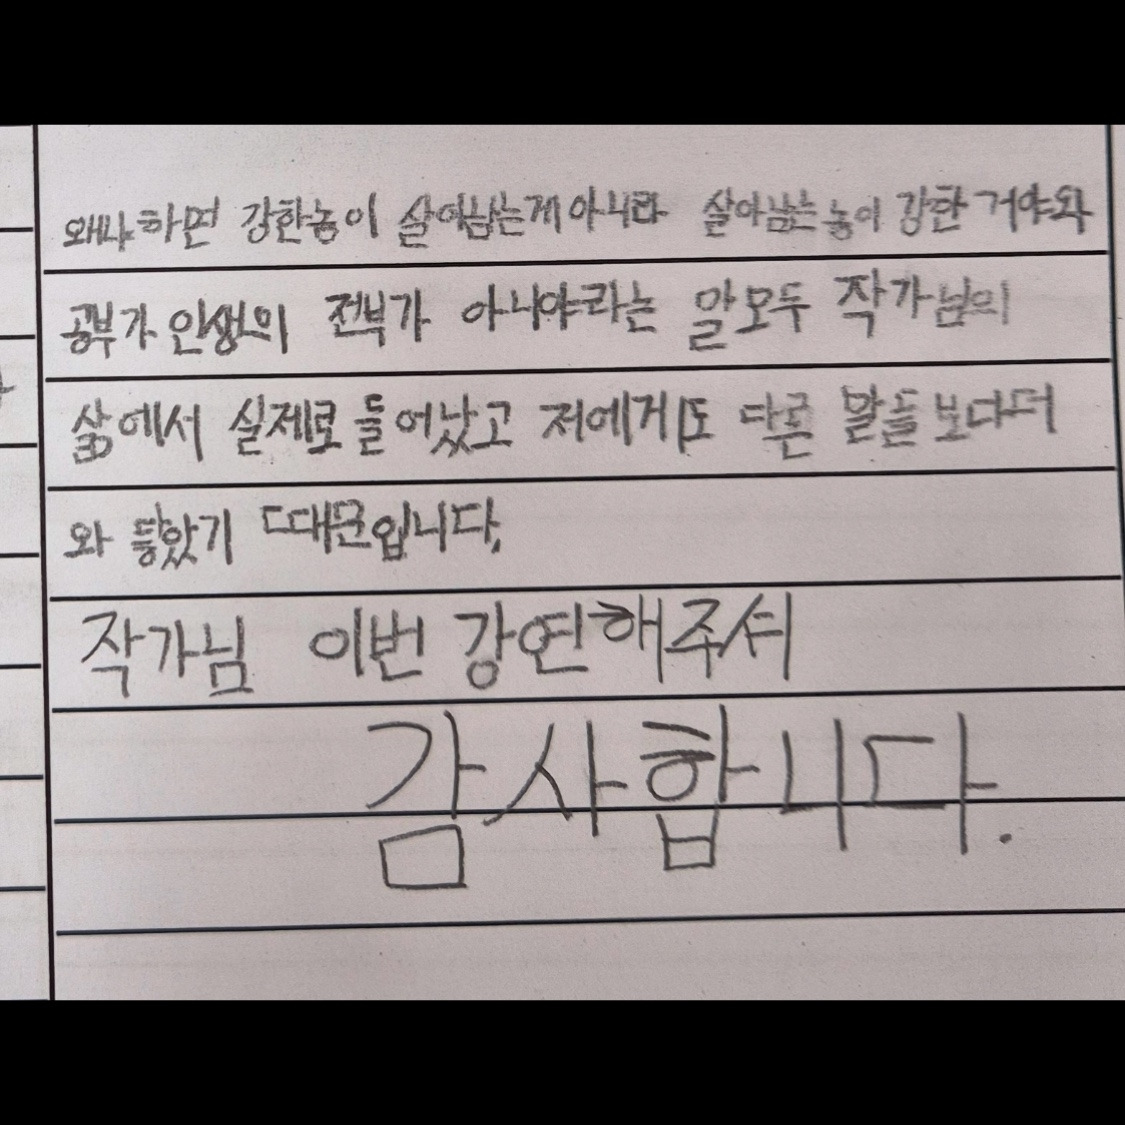 왜냐하면 강한놈이 살아남는게 아니라 살아남는 놈이 강한 거야와
공부가 인생의 전부가 아니야라는 말 모두 작가님의
삶에서 실제로 들어났고 저에게도 다른 말들보다 더
와 닿았기 때문입니다.
작가님 이번 강연해주셔
감사합니다.